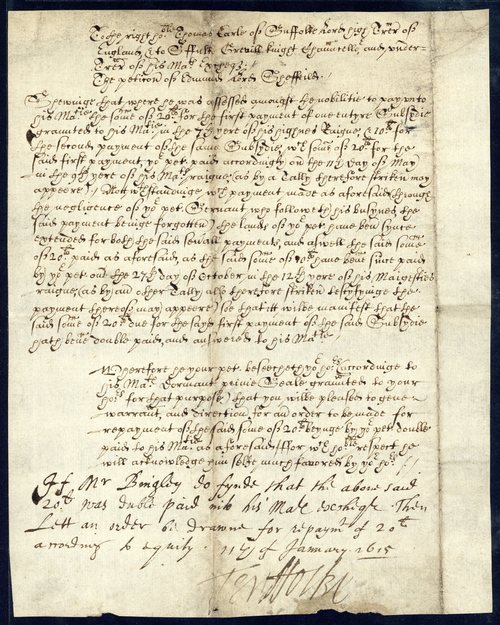 To the right ho:ble Thomas Earle of Suffolke Lord high Trẽr of
England, & to Sr ffulk Grevill knight Chauncellor and under-
Trẽr of his Mats Excheqr:
The peticon of Edmund Lord Sheffeild.
Shewinge that where he was assessed amongst the nobilitie to pay unto
his Matie the some of 20li for the first payment of one entyre Subsidie
graunted to his Matie in the 7th yere of his highnes Raigne, & 20li for
the second payment of the same Subsidie, wch some of 20li for the
said first payment, yor pet. paid accordingly on the 11th day of May
in the 9th yere of his Mats raigne, (as by a Tally therefore striken may
appeere) Notwthstandinge wch payment made as aforesaid, through
the negligence of yor pet. Servant, who followeth his busynes the
said payment beinge forgotten, the lands of yor pet. have ben synce
extended for both the said severall payments, and aswell the said some
of 20li paid as aforesaid, as the said some of 20li have bene since paid
by yor pet. on the 27th day of October in the 12th yere of his Majesties
raigne, (as by another Tally also therefore striken testifyinge the
payment thereof may appeere) Soe that itt wilbe manifest that the
said some of 20li due for the said first payment of the said Subsidie
hath bene double paid, and answered to his Matie
Wherefore he your pet. beseecheth yor hors (accordinge to
his Mats Dormant privie Seale graunted to your
hors for that purpose) that you wilbe pleased to geve
warrant, and direction, for an order to be made for
repayment of the said some of 20li beynge by yor pet. double
paid to his Matie as aforesaid. (ffor wch hoble respect he
will acknowledge him selfe much favored by yor hors.)
If Mr Bingley do fynde that the above said
20li was duble paid into his Mats excheqr. Then
Lett an order be drawne for repaymt of 20li
according to equity. 11th of January 1615